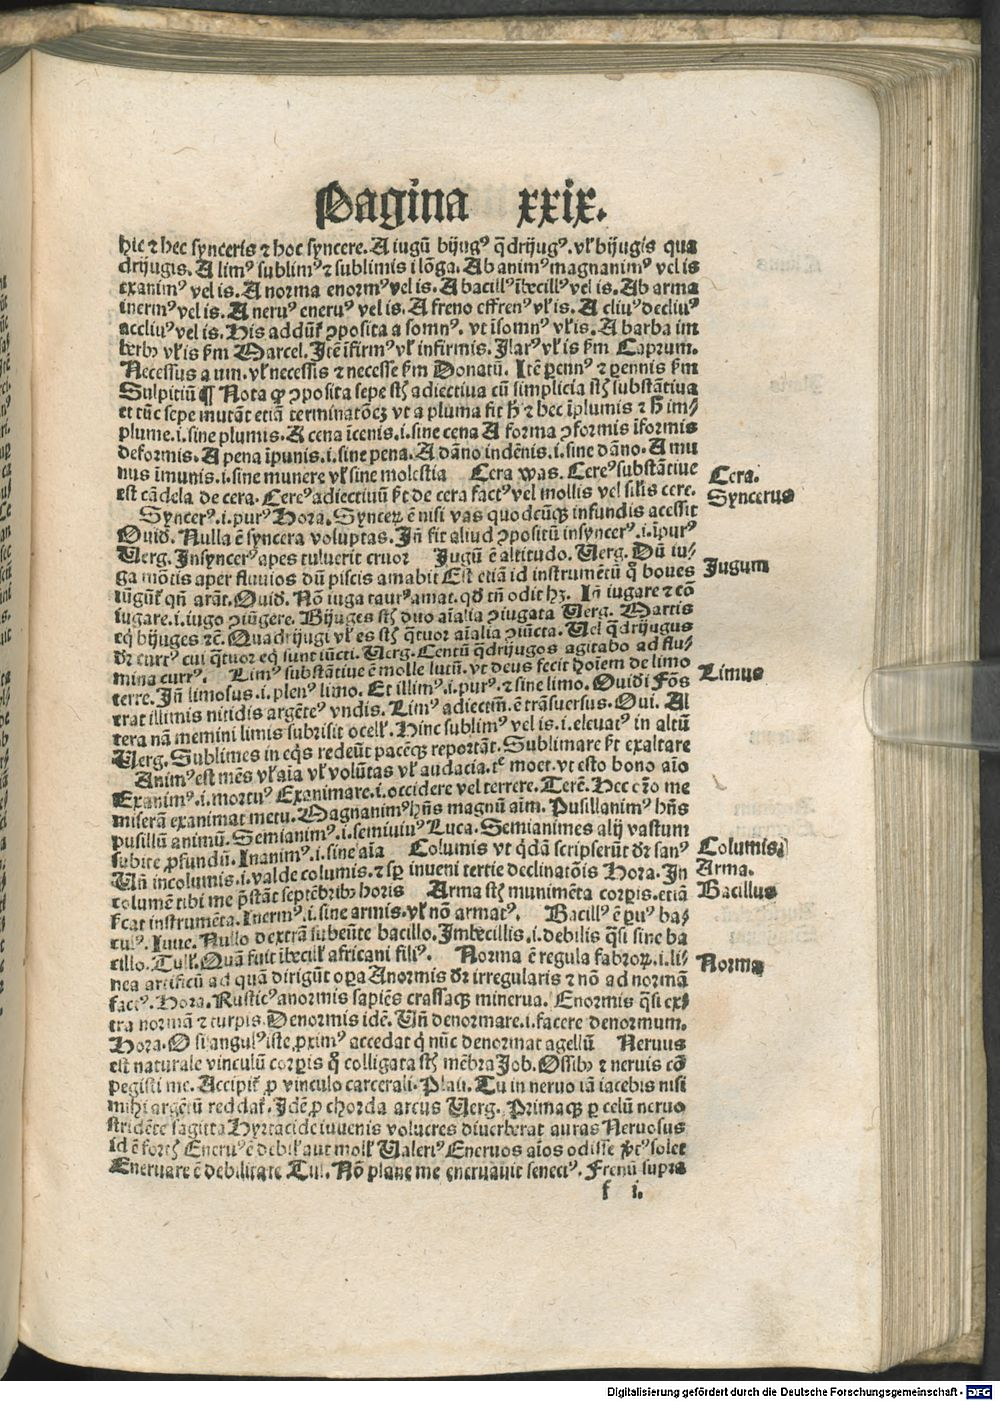 Pagina xxix.
hic ⁊ hec synceris ⁊ hoc syncere. A iugū bijugꝰ q̄drijugꝰ. vł bijugis qua
drijugis. A limꝰ sublimꝰ ⁊ sublimis i lōga. Ab animꝰ magnanimꝰ vel is
exanimꝰ vel is. A norma enormꝰ vel is. A bacillꝰ ībecillꝰ vel is. Ab arma
inermꝰ vel is. A neruꝰ eneruꝰ vel is. A freno effrenꝰ vł is. A cliuꝰ decliuꝰ
accliuꝰ vel is. His addūt ꝯposita a somnꝰ. vt īsomnꝰ vł is. A barba im
berbꝰ vł is ẜm Marcel. Itē īfirmꝰ vł infirmis. Ilarꝰ vł is ẜm Caprum.
Necessus a um. vł necessis ⁊ necesse ẜm Donatū. Itē ꝑennꝰ ⁊ ꝑennis ẜm
Sulpitiū ¶ Nota ꝙ ꝯposita sepe st̄ adiectiua cū simplicia st̄ substātiua
et tūc sepe mutāt etiā terminatōeꝫ vt a pluma fit h̄ ⁊ hec īplumis ⁊ h̄ im⸗
plume .i. sine plumis. A cena īcenis .i. sine cena A forma ꝯformis īformis
deformis. A pena īpunis .i. sine pena. A dāno indēnis .i. sine dāno. A mu
nus īmunis .i. sine munere vł sine molestia Cera was. Cereꝰ substātiue
est cādela de cera. Cereꝰ adiectiuū ē de cera factꝰ vel mollis vel silis cere.
Syncerꝰ .i. purꝰ Hora. Syncerꝫ ē nisi vas quodcūqꝫ infundis acessit
Ouid. Nulla ē syncera voluptas. In̄ fit aliud ꝯpositū insyncerꝰ .i. īpurꝰ
Uerg. Insyncerꝰ apes tulerit cruor Jugū ē altitudo. Uerg. Dū iu⸗
ga mōtis aper fluuios dū piscis amabit Est etiā id instrumētū q̄ boues
iūgūt qn̄ arāt. Ouid. Nō iuga taurꝰ amat. qd̄ tn̄ odit hꝫ. In̄ iugare ⁊ cō
iugare .i. iugo ꝯiūgere. Bijuges st̄ duo aīalia ꝯiugata Uerg. Martis
eq̄ bijuges ⁊c̄. Quadrijugi vł es st̄ q̄tuor aīalia ꝯiūcta. Uel q̄drijugus
dr̄ currꝰ cui q̄tuor eq̄ sunt iūcti. Uerg. Centū q̄drijugos agitabo ad flu⸗
mina currꝰ. Limꝰ substātiue ē molle lutū. vt deus fecit hoīem de limo
terre. In̄ limosus .i. plenꝰ limo. Et illimꝰ .i. purꝰ. ⁊ sine limo. Ouidi Fōs
erat illimis nitidis argēteꝰ vndis. Limꝰ adiectiū. ē trāsuersus. Oui. Al
tera nā memini limis subrisit ocell'. Hinc sublimꝰ vel is .i. eleuatꝰ in altū
Uerg. Sublimes in eq̄s redeūt pacēqꝫ reportāt. Sublimare ē exaltare
Animꝰ est mēs vł aīa vł volūtas vł audacia. vt esto bono aīo
Exanimꝰ .i. mortuꝰ Exanimare .i. occidere vel terrere. Terē. Hec or̄o me
miserā exanimat metu. Magnanimꝰ hn̄s magnū aīm. Pusillanimꝰ hn̄s
pusillū animū. Semianimꝰ .i. semiuiuꝰ Luca. Semianimes alij vastum
subite ꝓfundū. Inanimꝰ .i. sine aīa Columis vt q̄dā scripserūt dr̄ sanꝰ
Un̄ incolumis .i. valde columis. ⁊ sꝑ inueni tertie declinatōis Hora. In
columē tibi me p̄stāt septēbribꝰ horis Arma st̄ munimēta corꝑis. etiā
instrumēta. Inermꝰ .i. sine armis. vł nō armatꝰ. Bacillꝰ ē puꝰ ba⸗
culꝰ. Iuue. Nullo dextrā subeūte bacillo. Imbecillis .i. debilis q̄si sine ba
cillo. Tull'. Quā fuit ībecill' africani filiꝰ. Norma ē regula fabroꝝ .i. li⸗
nea artificū ad quā dirigūt oꝑa Anormis dr̄ irregularis ⁊ nō ad normā
factꝰ. Hora. Rusticꝰ anormis sapiēs crassaqꝫ minerua. Enormis q̄si ex⸗
tra normā ⁊ turpis. Denormis idē. Un̄ denormare .i. facere denormum.
Hora. O si angulꝰ iste ꝓximꝰ accedat q̄ nūc denormat agellū Neruus
est naturale vinculū corꝑis q̄ colligata st̄ mēbra Job. Ossibꝰ ⁊ neruis cō
pegisti me. Accipit̄ ꝓ vinculo carcerali. Plau. Tu in neruo iā iacebis nisi
mihi argētū reddat̄. Idē ꝓ chorda arcus Uerg. Primaqꝫ ꝑ celū neruo
stridēte sagitta Hyrtacide iuuenis volucres diuerberat auras Neruosus
id ē fortꝭ Eneruꝰ ē debil' aut moll' Ualeriꝰ Eneruos aīos odisse solet
Eneruare ē debilitare Tul. Nō plane me eneruauit senectꝰ. Frenū supra
f i.
Cera.
Syncerus
Jugum
Limus
Columis.
Arma.
Bacillus
Norma
Digitalisierung gefördert durch die Deutsche Forschungsgemeinschaft - DFG